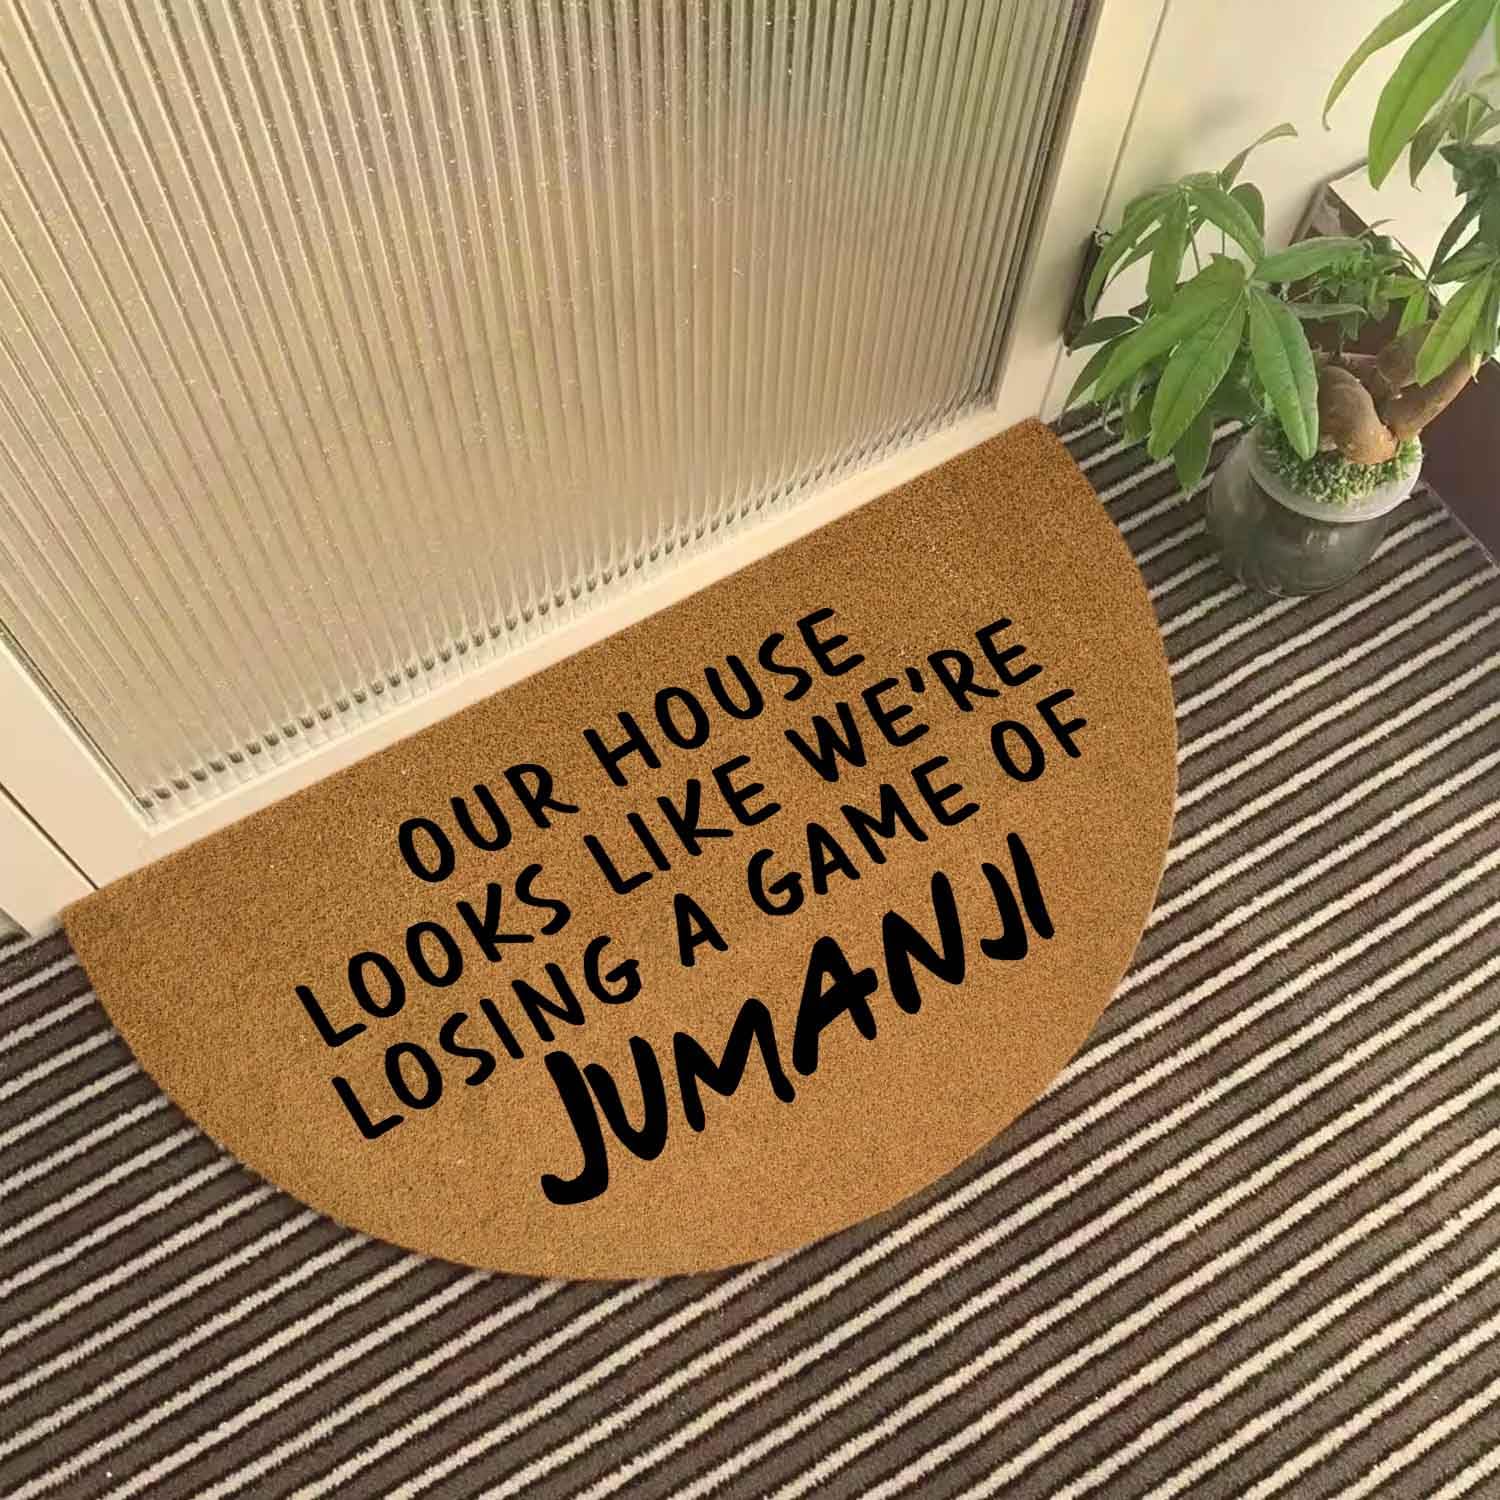 OUR HOUSE
LOOKS LIKE WE'RE
LOSING A GAME OF
JUMANJI